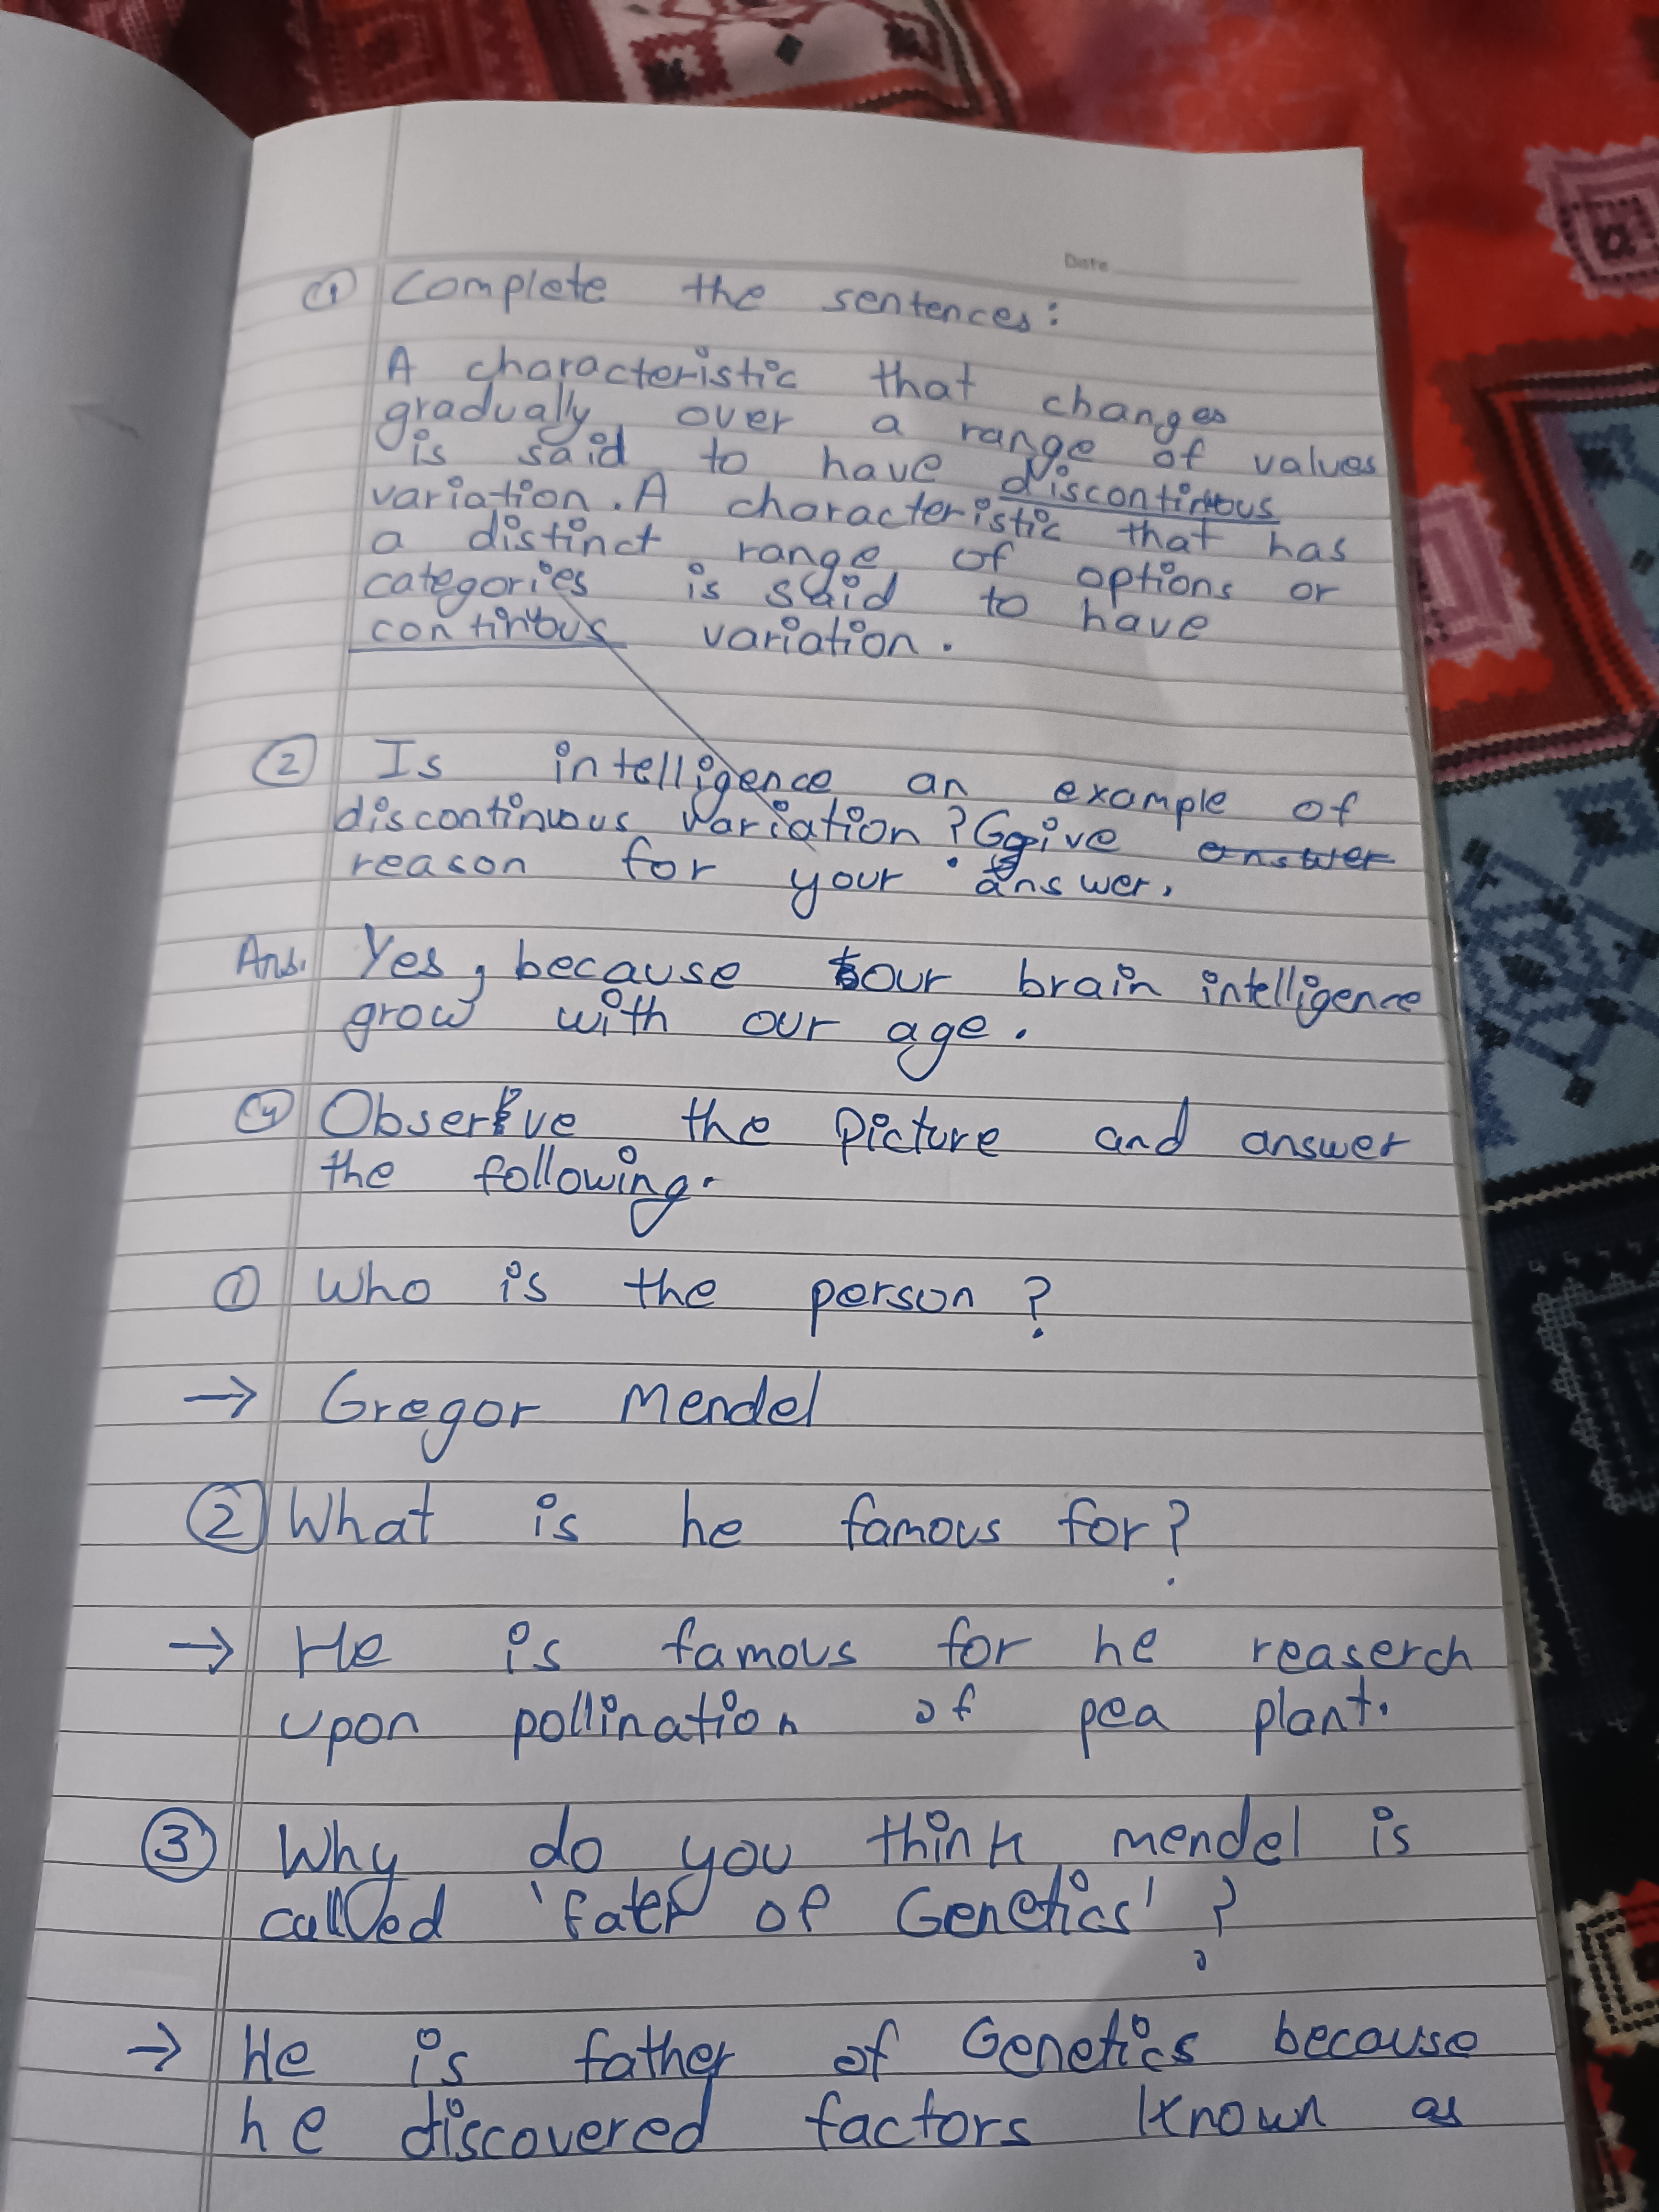 Date
① Complete the sentences:
A characteristic that changes
gradually over a range of values
is said to have discontinuous
variation. A characteristic that has
a distinct range of options or
categories is said to have
continuous variation.
② Is intelligence an example of
discontinuous variation? Give answer
reason for your answer.
Ans. Yes, because our brain intelligence
grow with our age.
④ Observe the picture and answer
the following.
① Who is the person?
→ Gregor Mendel
② What is he famous for?
→ He is famous for he reaserch
upon pollination of pea plant.
③ Why do you think mendel is
called 'fater of Genetics'?
→ He is father of Genetics because
he discovered factors known as